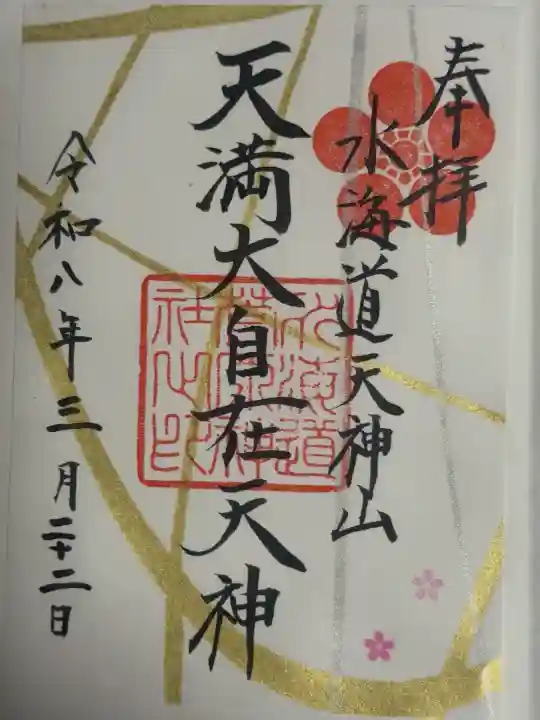 奉拝
水海道天神山
天満大自在天神
水海道
菅原神
社之印
令和八年三月二十二日